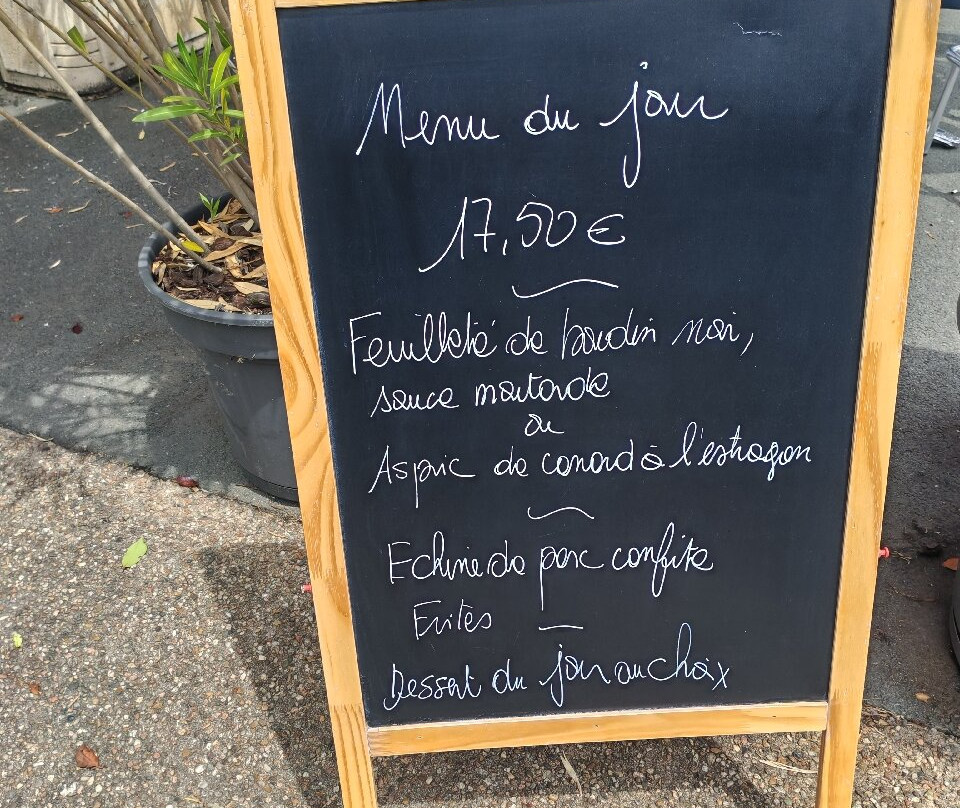 Menu du jour
17,50€
Feuilleté de boudin noir,
sauce moutarde
ou
Aspic de canard à l'estragon
Echine de porc confite
Frites
Dessert du jour au choix